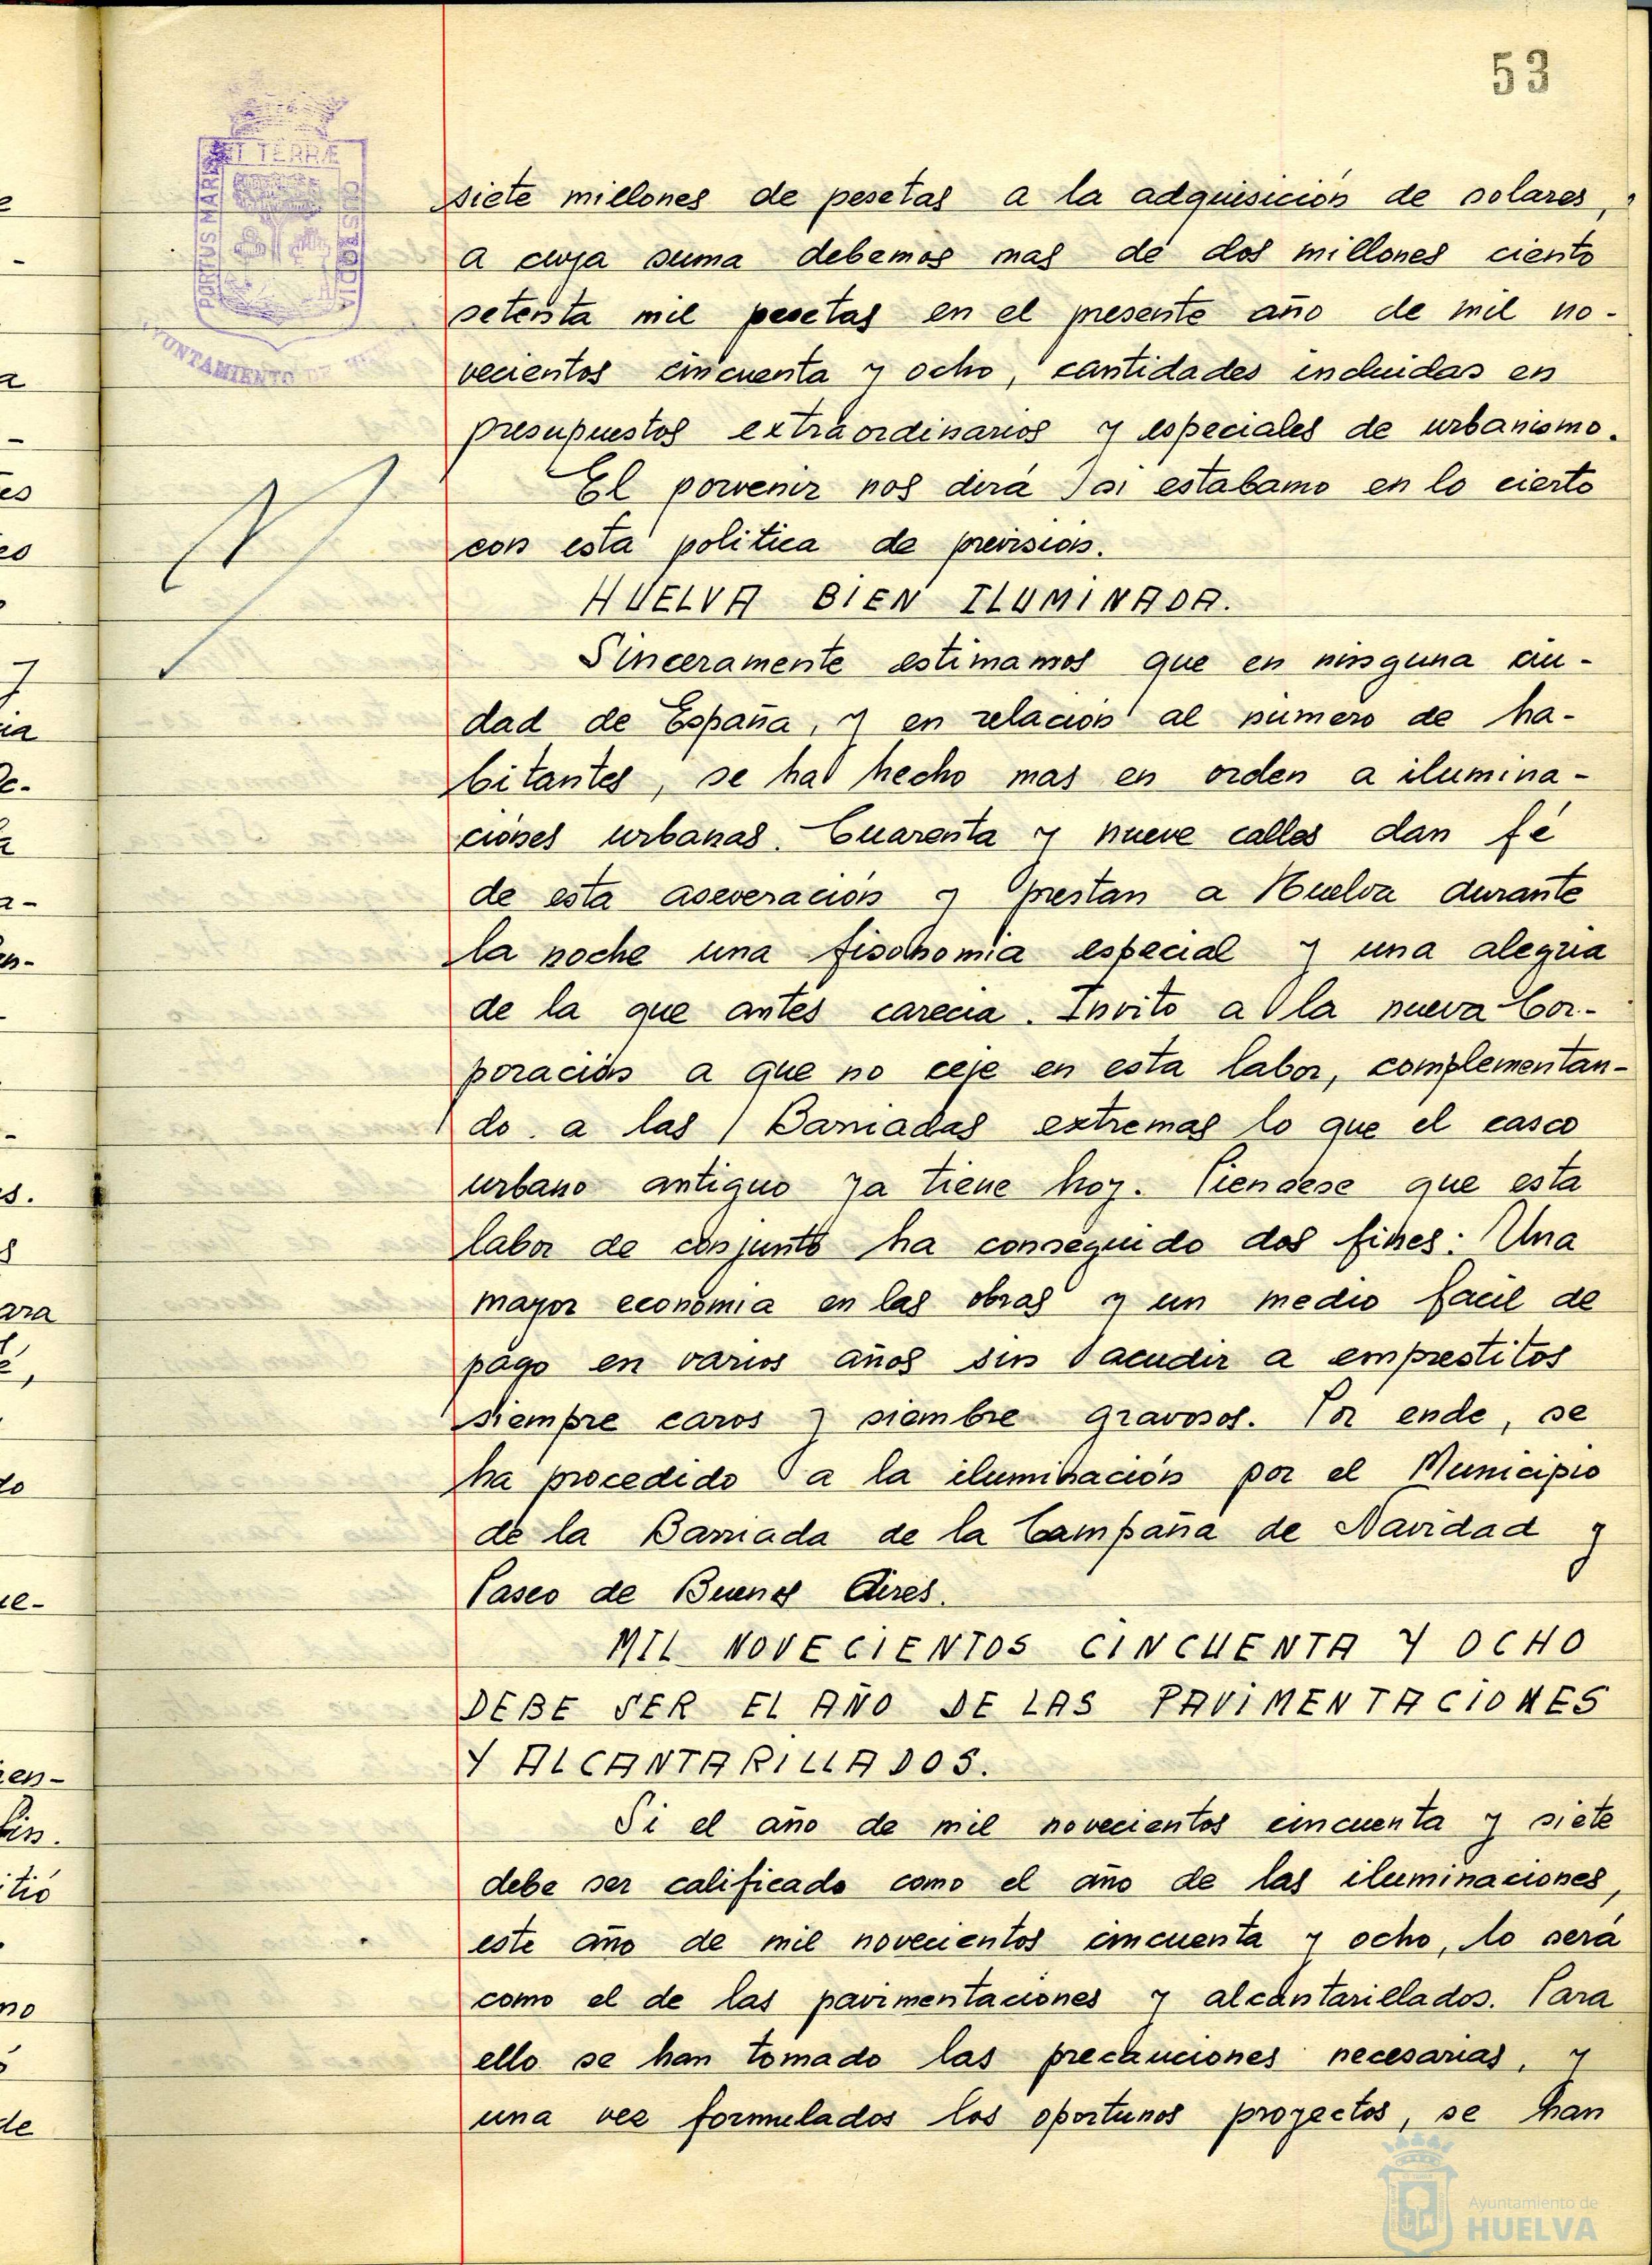 53
ET TERRÆ
PORTUS MARIS
CUSTODIA
AYUNTAMIENTO DE
siete millones de pesetas a la adquisición de solares,
a cuya suma debemos mas de dos millones ciento
setenta mil pesetas en el presente año de mil no-
vecientos cincuenta y ocho, cantidades incluidas en
presupuestos extraordinarios y especiales de urbanismo.
El porvenir nos dirá si estabamo en lo cierto
con esta politica de previsión.
HUELVA BIEN ILUMINADA.
Sinceramente estimamos que en ninguna ciu-
dad de España, y en relación al número de ha-
bitantes, se ha hecho mas en orden a ilumina-
ciones urbanas. Cuarenta y nueve calles dan fé
de esta aseveración y prestan a Huelva durante
la noche una fisonomía especial y una alegria
de la que antes carecia. Invito a la nueva Cor-
poración a que no ceje en esta labor, complementan-
do a las Barriadas extremas lo que el casco
urbano antiguo ya tiene hoy. Piendese que esta
labor de conjunto ha conseguido dos fines: Una
mayor economia en las obras y un medio facil de
pago en varios años sin acudir a emprestitos
siempre caros y siembre gravosos. Por ende, se
ha procedido a la iluminación por el Municipio
de la Barriada de la Campaña de Navidad y
Paseo de Buenos Aires.
MIL NOVECIENTOS CINCUENTA Y OCHO
DEBE SER EL AÑO DE LAS PAVIMENTACIONES
Y ALCANTARILLADOS.
Si el año de mil novecientos cincuenta y siete
debe ser calificado como el año de las iluminaciones,
este año de mil novecientos cincuenta y ocho, lo será
como el de las pavimentaciones y alcantarillados. Para
ello se han tomado las precauciones necesarias, y
una vez formulados los oportunos proyectos, se han
Ayuntamiento de
HUELVA